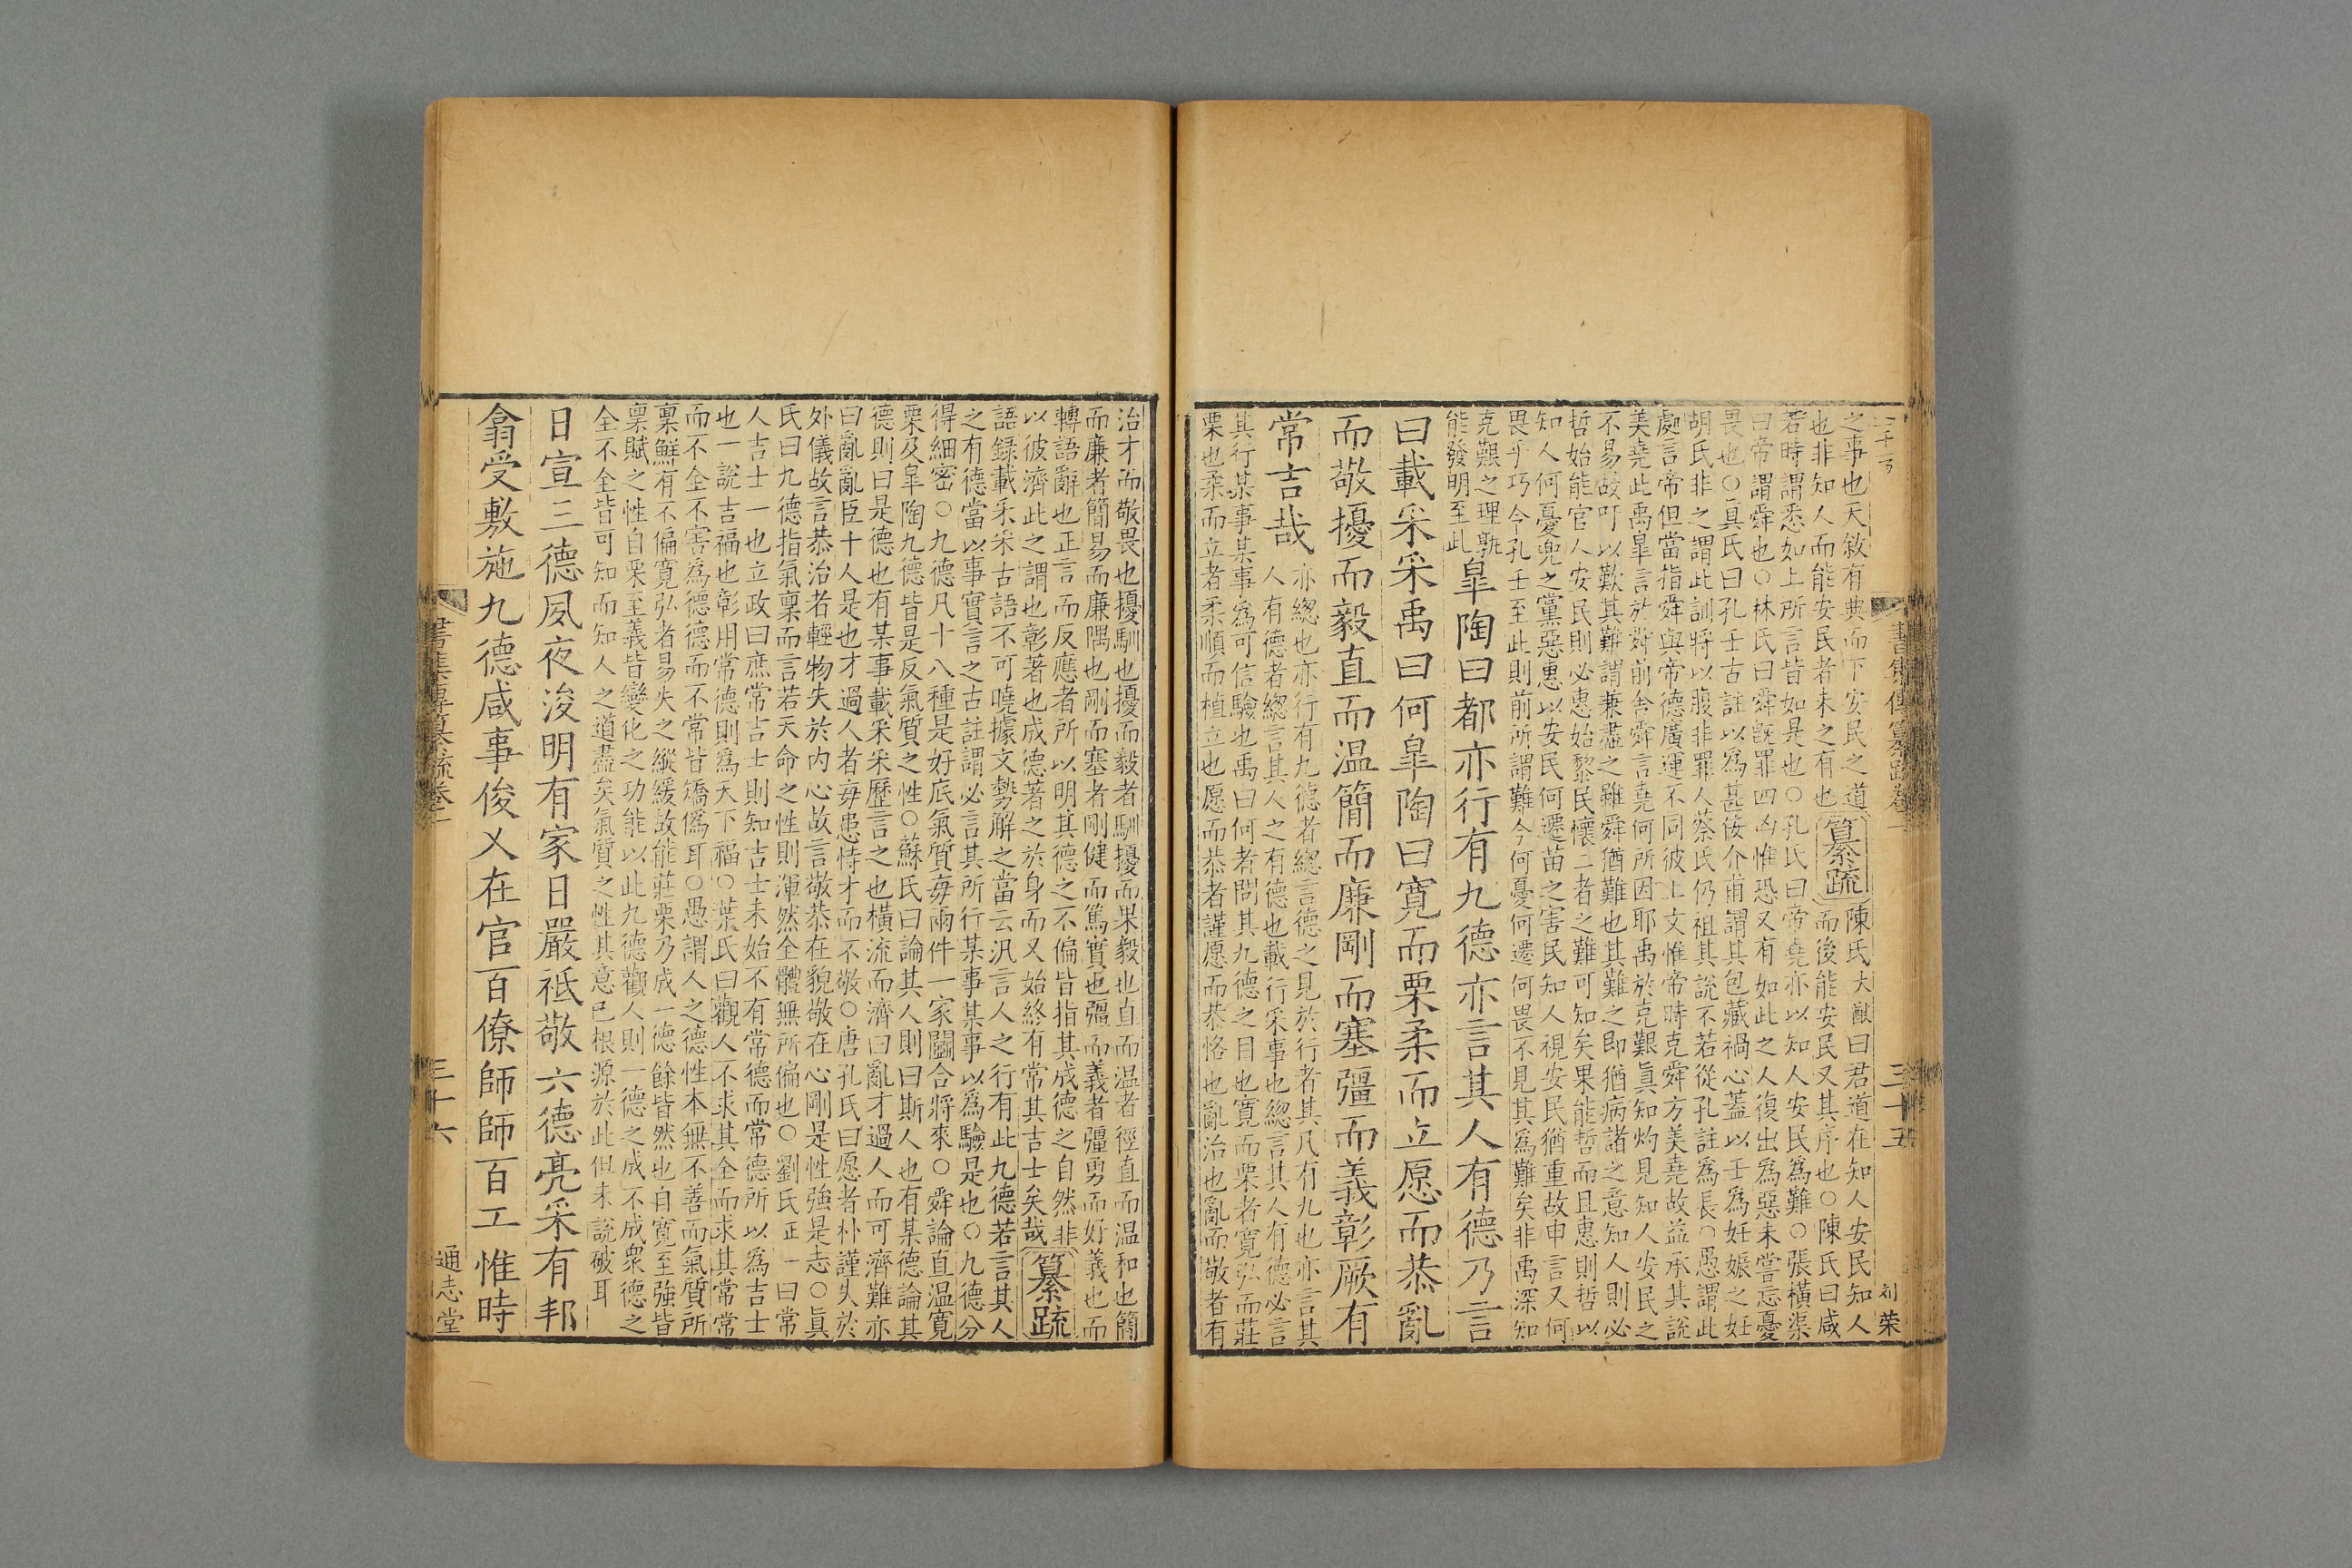 之事也天敘有典而下安民之道纂疏陳氏大猷曰君道在知人安民知人
也非知人而能安民者未之有也而後能安民又其序也○陳氏曰咸
若時謂悉如上所言皆如是也○孔氏曰帝堯亦以知人安民爲難○張橫渠
曰帝謂舜也○林氏曰舜旣罪四凶惟恐又有如此之人復出爲惡未嘗忘憂
畏也○眞氏曰孔壬古註以爲甚佞介甫謂其包藏禍心蓋以壬爲妊娠之妊
胡氏非之謂此訓將以腹非罪人蔡氏仍祖其說不若從孔註爲長○愚謂此
處言帝但當指舜與帝德廣運不同彼上文惟帝時克舜方美堯故益承其說
美堯此禹臯言於舜前舍舜言堯何所因耶禹於克艱眞知灼見知人安民之
不易故吁以歎其難謂兼盡之雖舜猶難也其難之卽猶病諸之意知人則必
哲始能官人安民則必惠始黎民懷二者之難可知矣果能哲而且惠則哲以
知人何憂兜之黨惡惠以安民何遷苗之害民知人視安民猶重故申言又何
畏乎巧令孔壬至此則前所謂難今何憂何遷何畏不見其爲難矣非禹深知
克艱之理孰
能發明至此
皐陶曰都亦行有九德亦言其人有德乃言
曰載采采禹曰何皐陶曰寬而栗柔而立愿而恭亂
而敬擾而毅直而温簡而廉剛而塞彊而義彰厥有
常吉哉
亦總也亦行有九德者總言德之見於行者其凡有九也亦言其
人有德者總言其人之有德也載行采事也總言其人有德必言
其行某事某事爲可信驗也禹曰何者問其九德之目也寬而栗者寬弘而莊
栗也柔而立者柔順而植立也愿而恭者謹愿而恭恪也亂治也亂而敬者有
三十五
治才而敬畏也擾馴也擾而毅者馴擾而果毅也直而温者徑直而温和也簡
而廉者簡易而廉隅也剛而塞者剛健而篤實也彊而義者彊勇而好義也而
轉語辭也正言而反應者所以明其德之不偏皆指其成德之自然非
以彼濟此之謂也彰著也成德著之於身而又始終有常其吉士矣哉纂疏
語録載采采古語不可曉據文勢解之當云汎言人之行有此九德若言其人
之有德當以事實言之古註謂必言其所行某事某事以爲驗是也○九德分
得細密○九德凡十八種是好底氣質每兩件一家鬭合將來○舜論直温寬
栗及皐陶九德皆是反氣質之性○蘇氏曰論其人則曰斯人也有某德論其
德則曰是德也有某事載采采歷言之也橫流而濟曰亂才過人而可濟難亦
曰亂亂臣十人是也才過人者每患恃才而不敬○唐孔氏曰愿者朴謹失於
外儀故言恭治者輕物失於内心故言敬恭在貌敬在心剛是性強是志○眞
氏曰九德指氣稟而言若天命之性則渾然全體無所偏也○劉氏一曰常
人吉士一也立政曰庶常吉士則知吉士未始不有常德而常德所以爲吉士
也一說吉福也彰用常德則爲天下福○葉氏曰觀人不求其全而求其常常
而不全不害爲德德而不常皆矯僞耳○愚謂人之德性本無不善而氣質所
稟鮮有不偏寛弘者易失之縱緩故能莊栗乃成一德餘皆然也自寬至強皆
稟賦之性自栗至義皆變化之功能以此九德觀人則一德之成不成衆德之
全不全皆可知而知人之道盡矣氣質之性其意已根源於此但未說破耳
日宣三德夙夜浚明有家日嚴祗敬六德亮采有邦
翕受敷施九德咸事俊乂在官百僚師師百工惟時
書集傳纂疏卷一
三十六
通志堂